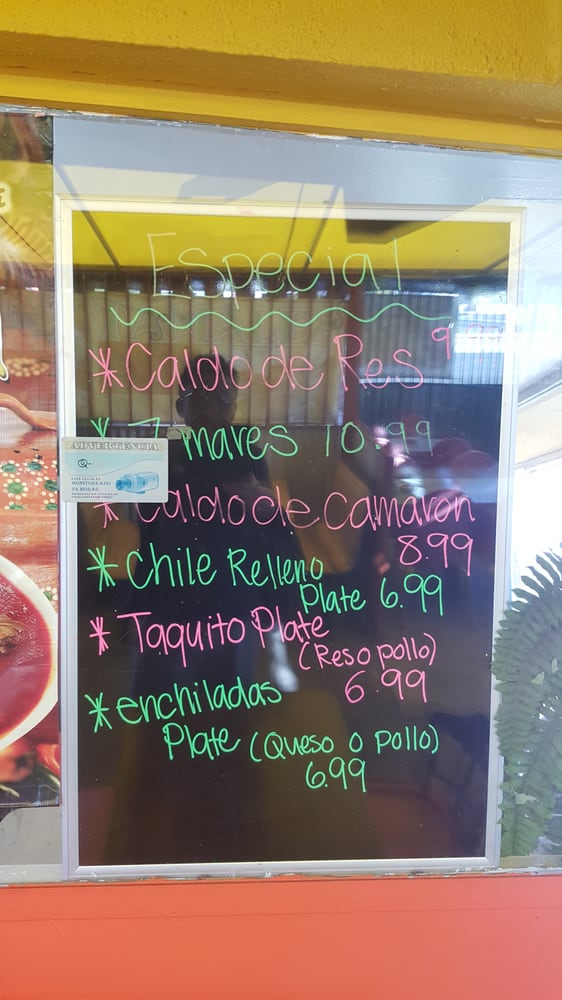 Especial
* Caldo de Res 9.99
* 7 mares 10.99
ADVERTENCIA
ESTE LUGAR ES
MONITOREADO
24 HORAS
* Caldo de Camaron
8.99
* Chile Relleno
Plate 6.99
* Taquito Plate
(Res o pollo)
6.99
* enchiladas
Plate (Queso o pollo)
6.99